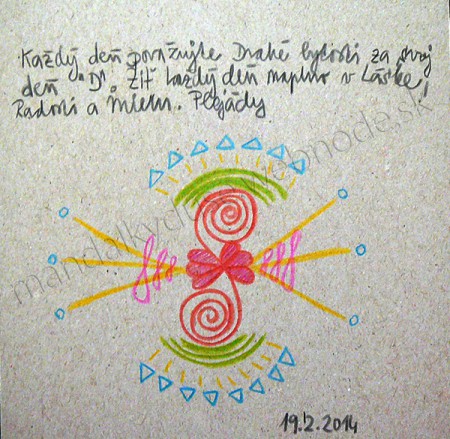 Každý deň považujte Drahé bytosti za svoj
deň "D". Žiť každý deň naplno v Láske,
Radosti a Mieru. Plejády
mandalkyduse.webnode.sk
19.2.2014